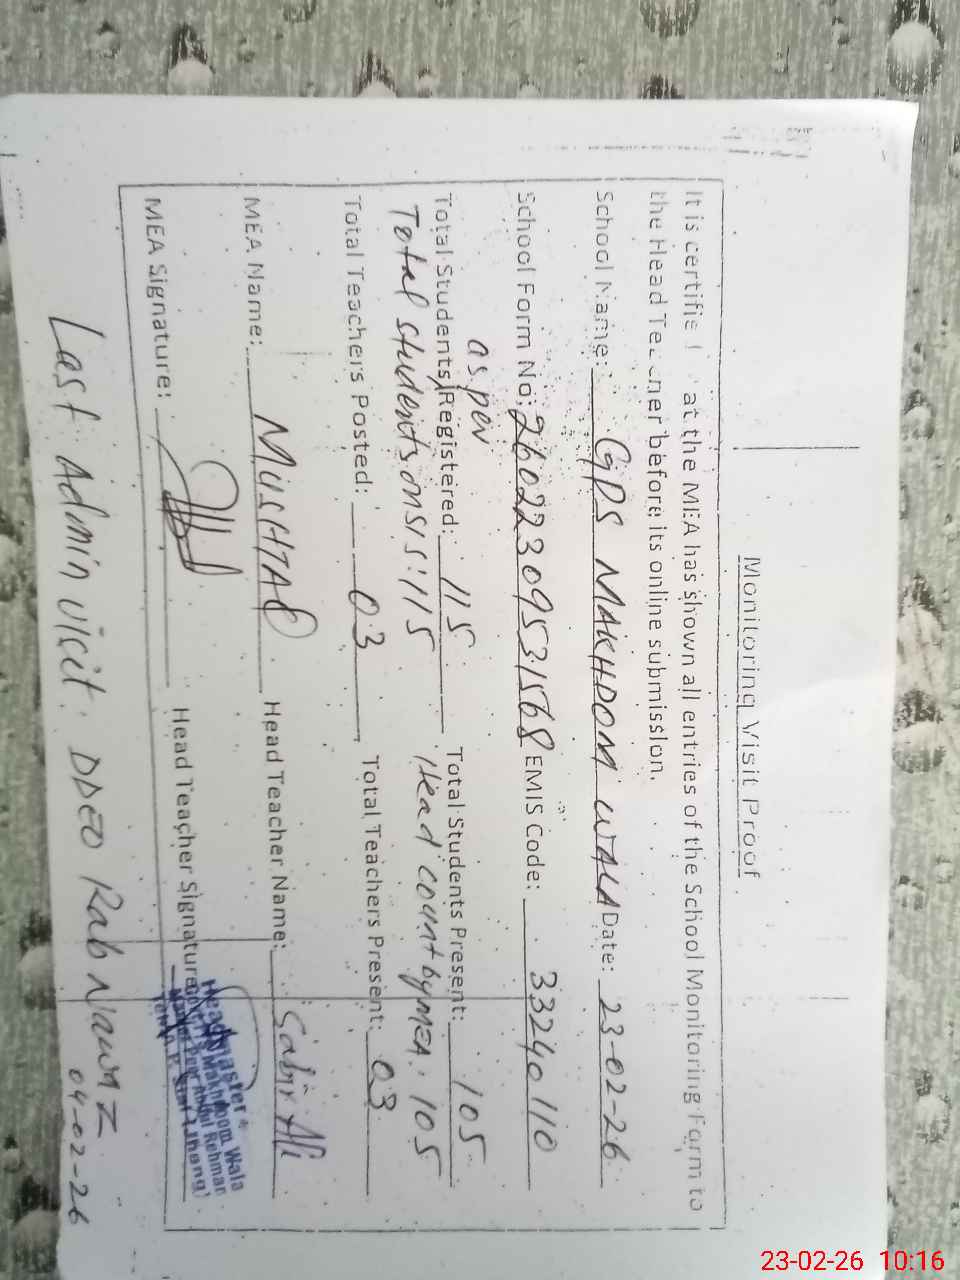 Monitoring Visit Proof
It is certifie at the MEA has shown all entries of the School Monitoring Form to
the Head Teacher before its online submission.
School Name: GPS MAKHDOM WALA Date: 23-02-26
School Form No: 26022309531568 EMIS Code: 33240110
as per
Total Students Registered: 115 Total Students Present: 105
Total students on SIS: 115 Head count by MEA. 105
Total Teachers Posted: 03 Total Teachers Present: 03
MEA Name: MUSHTAQ Head Teacher Name: Sabir Ali
MEA Signature: Head Teacher Signature:
Headmaster
Makhdoom Wala
Abdul Rehman
Jhang
Last Admin visit. DDEO Rab Nawaz
04-02-26
23-02-26 10:16